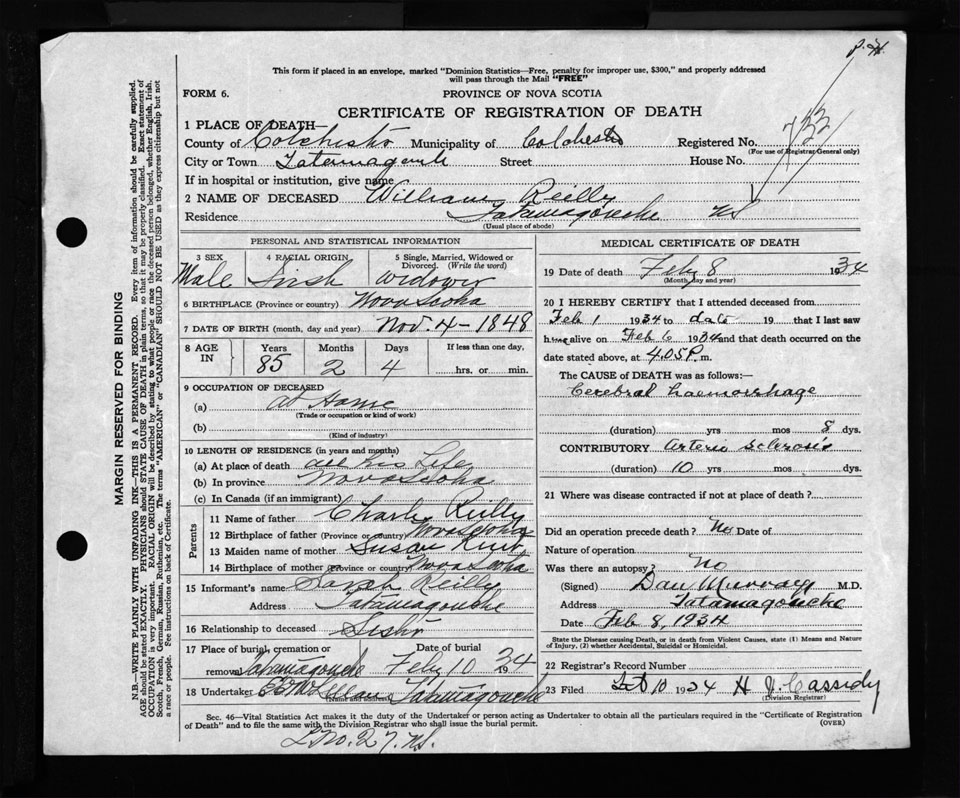 P.H.
This form if placed in an envelope, marked "Dominion Statistics—Free, penalty for improper use, $300," and properly addressed
will pass through the Mail "FREE"
FORM 6.
PROVINCE OF NOVA SCOTIA
CERTIFICATE OF REGISTRATION OF DEATH
1 PLACE OF DEATH—
County of Colchester Municipality of Colchester Registered No. 733
(For use of Registrar General only)
City or Town Street House No.
If in hospital or institution, give name
2 NAME OF DECEASED William Reilly
Residence Tatamagouche NS
(Usual place of abode)
PERSONAL AND STATISTICAL INFORMATION
3 SEX 4 RACIAL ORIGIN 5 Single, Married, Widowed or Divorced. (Write the word)
Male Irish Widower
6 BIRTHPLACE (Province or country) Nova Scotia
7 DATE OF BIRTH (month, day and year) Nov. 4 - 1848
8 AGE IN Years Months Days If less than one day,
85 2 4 hrs. or min.
9 OCCUPATION OF DECEASED
(a) at Home
(Trade or occupation or kind of work)
(b)
(Kind of industry)
10 LENGTH OF RESIDENCE (in years and months)
(a) At place of death all his Life
(b) In province Nova Scotia
(c) In Canada (if an immigrant)
Parents
11 Name of father Charly Reilly
12 Birthplace of father (Province or country) Nova Scotia
13 Maiden name of mother Susan
14 Birthplace of mother (Province or country) Nova Scotia
15 Informant's name Sarah Reilly
Address Tatamagouche
16 Relationship to deceased Sister
17 Place of burial, cremation or removal Tatamagouche Date of burial Feby 10 34
18 Undertaker Tatamagouche
(Name and address)
MEDICAL CERTIFICATE OF DEATH
19 Date of death Feby 8 1934
(Month, day and year)
20 I HEREBY CERTIFY that I attended deceased from
Feb 1 1934 to date 19 that I last saw
him alive on Feb 6 1934 and that death occurred on the
date stated above, at 4.05 P.m.
The CAUSE of DEATH was as follows:—
Cerebral haemorrhage
(duration) yrs mos 8 dys.
CONTRIBUTORY arterio sclerosis
(duration) 10 yrs mos dys.
21 Where was disease contracted if not at place of death?
Did an operation precede death? No Date of
Nature of operation
Was there an autopsy? No
(Signed) Dan Murray M.D.
Address Tatamagouche
Date Feb 8, 1934
State the Disease causing Death, or in death from Violent Causes, state (1) Means and Nature
of Injury, (2) whether Accidental, Suicidal or Homicidal.
22 Registrar's Record Number
23 Filed Feb 10 1934 H J. Cassidy
(Division Registrar)
Sec. 46—Vital Statistics Act makes it the duty of the Undertaker or person acting as Undertaker to obtain all the particulars required in the "Certificate of Registration
of Death" and to file the same with the Division Registrar who shall issue the burial permit. (OVER)
No. 27. NS.
MARGIN RESERVED FOR BINDING
N.B.—WRITE PLAINLY WITH UNFADING INK—THIS IS A PERMANENT RECORD. Every item of information should be carefully supplied.
AGE should be stated EXACTLY. PHYSICIANS should STATE CAUSE OF DEATH in plain terms, so that it may be properly classified. Exact statement of
OCCUPATION is very important. RACIAL ORIGIN will be described by stating to what people or race the deceased person belonged, whether English, Irish,
Scotch, French, German, Russian, Ruthenian, etc. The terms "AMERICAN" or "CANADIAN" SHOULD NOT BE USED as they express citizenship but not
a race or people. See instructions on back of Certificate.